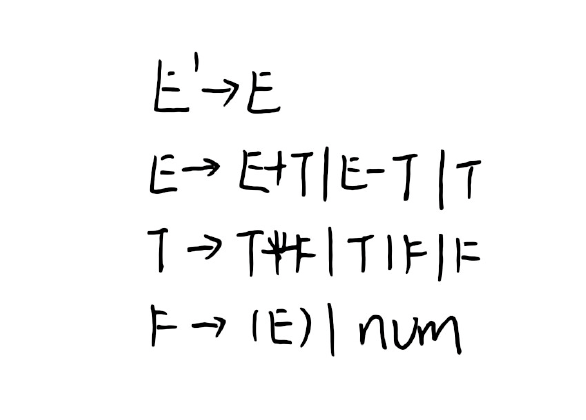 E'→E
E→E+T|E-T|T
T→T*F|T/F|F
F→(E)|num